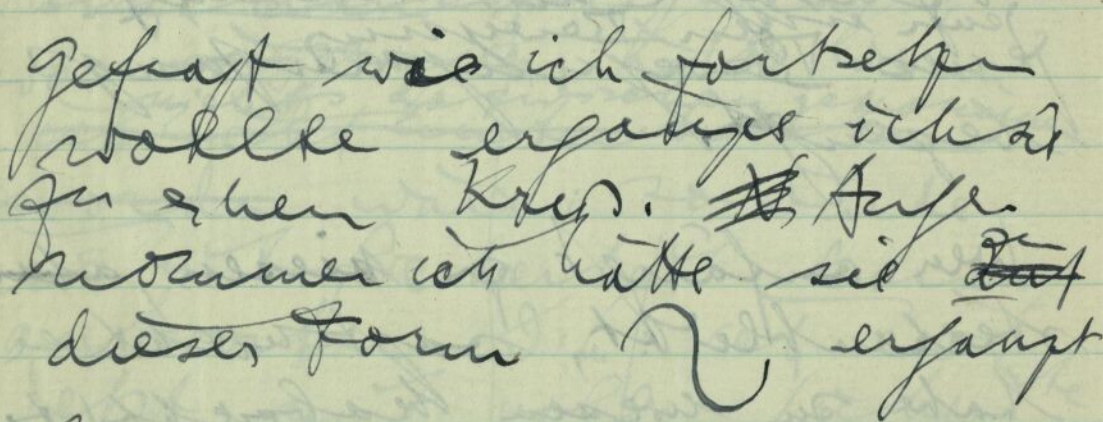 gefragt wie ich fortsetzen
wollte ergänze ich sie
zu einem Kreis. Ange-
nommen ich hätte sie zu
dieser Form ergänzt